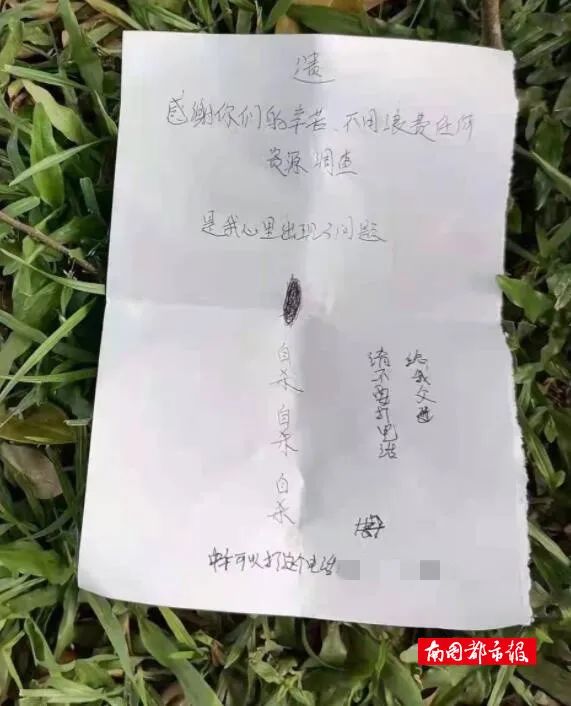 遗
感谢你们的辛苦、不用浪费任何
资源调查
是我心里出现了问题
自杀
自杀
自杀
给我父
请不要打电话
可以打这个电话
南国都市报